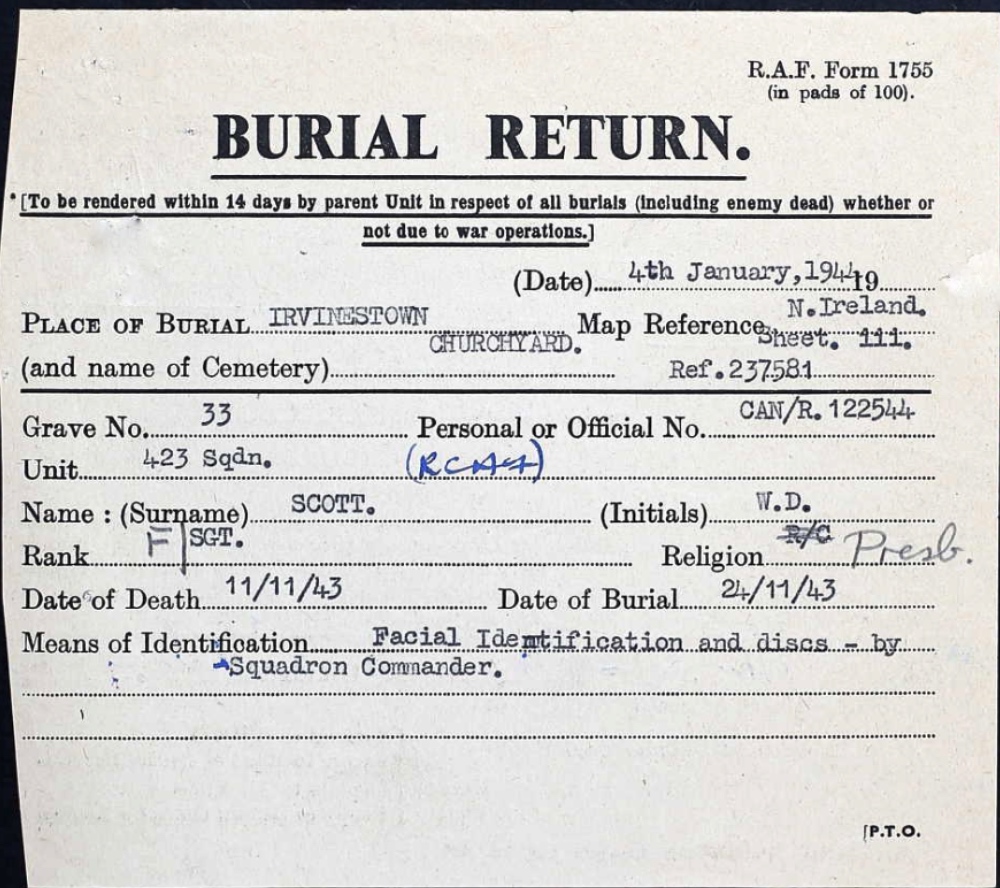 R.A.F. Form 1755
(in pads of 100).
BURIAL RETURN.
*[To be rendered within 14 days by parent Unit in respect of all burials (including enemy dead) whether or
not due to war operations.]
(Date) 4th January, 1944 19
PLACE OF BURIAL IRVINESTOWN CHURCHYARD. Map Reference N.Ireland. Sheet. 111.
(and name of Cemetery) Ref. 237581
Grave No. 33 Personal or Official No. CAN/R. 122544
Unit 423 Sqdn. (RCAF)
Name : (Surname) SCOTT. (Initials) W.D.
Rank F/SGT. Religion R/C Presb.
Date of Death 11/11/43 Date of Burial 24/11/43
Means of Identification Facial Identification and discs - by
Squadron Commander.
[P.T.O.